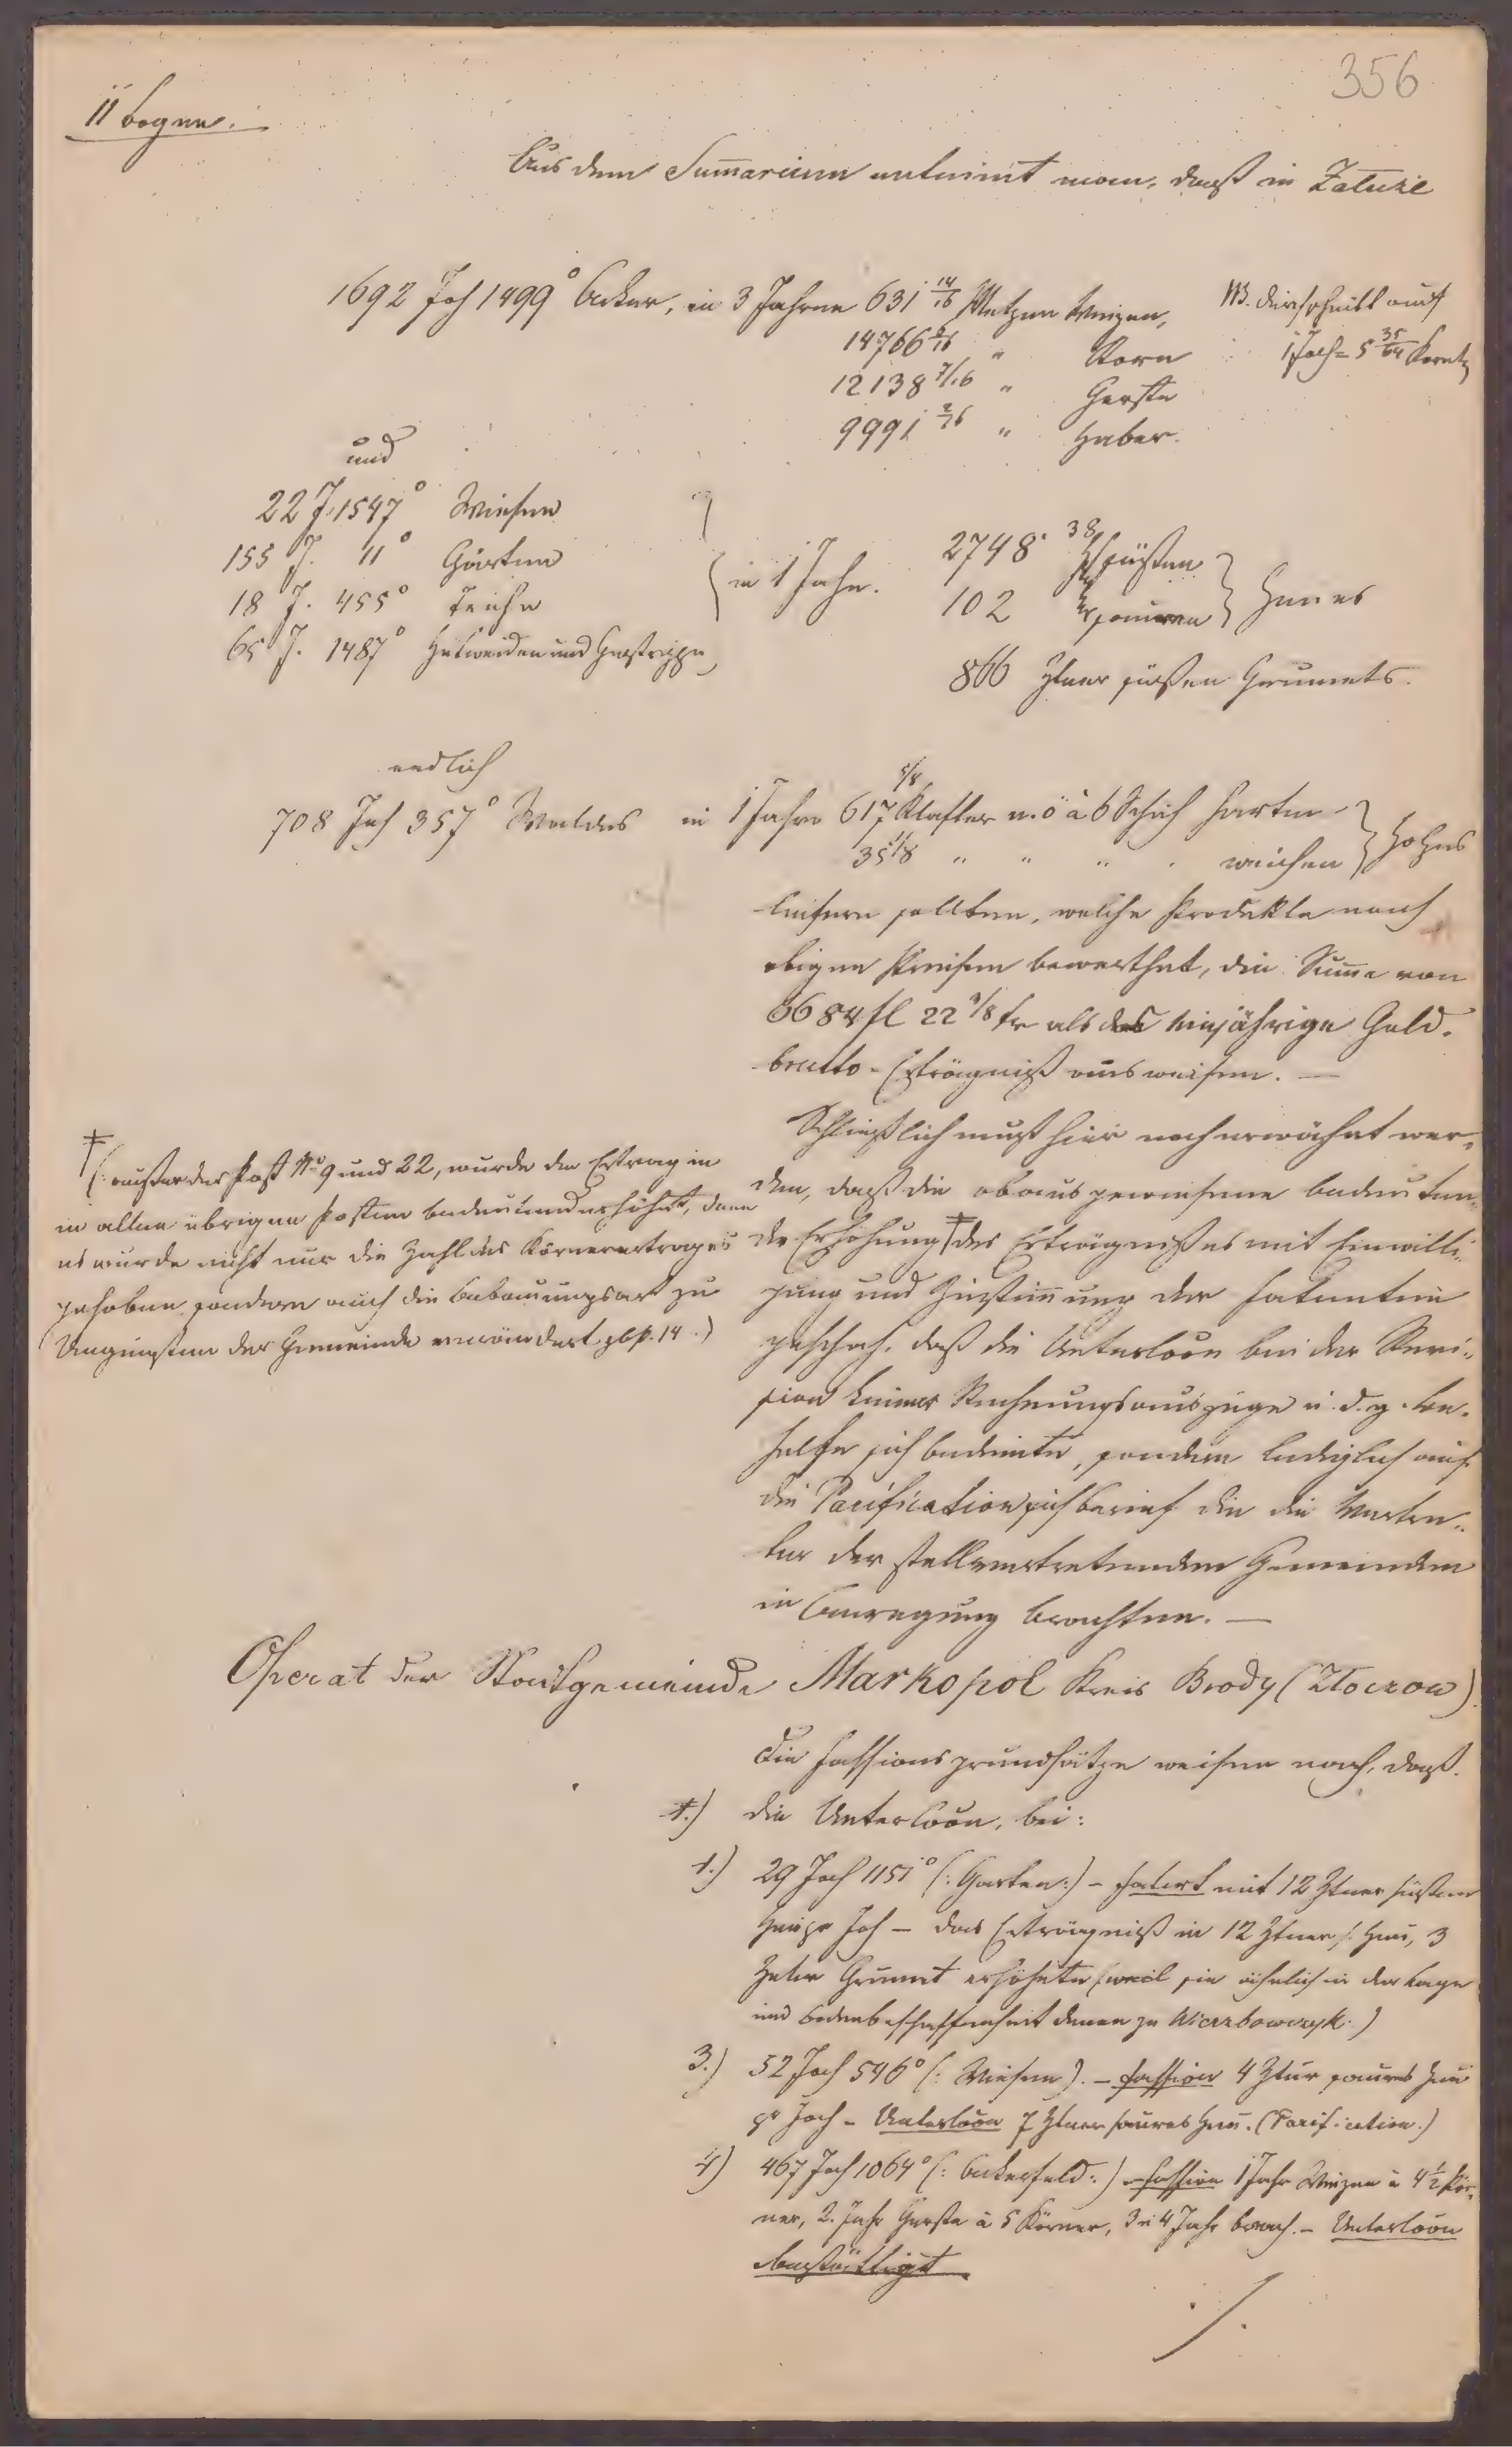 356
11 Bogen.
Aus dem Summarium entnimt man, daß in Zaturie
1692 Joh 1499° Acker, in 3 Jahren 631 14/16 Metzen Weizen,
14766 2/16 " Korn
12138 7/16 " Gerste
9991 2/16 " Haber.
NB. Durchschnitt auf
1 Joch = 5 35/64 Koretz
und
22 J. 1547° Wiesen
155 J. 11° Gärten
18 J. 455° Teiche
65 J. 1487° Hutweiden und Gestrippe
in 1 Jahr.
2748 38/ süßen
102 sauren
Heues
866 Ztner süßen Grumets.
endlich
708 Joh 357° Waldes in 1 Jahre 617 5/8 Klafter n.ö à 6 Schuh harten
35 1/8 " " " . weichen
Holzes
liefern sollten, welche Produkte nach
obigen Preisen bewerthet, die Summe von
6684 fl 22 3/8 kr als das einjährige Geld-
brutto-Erträgniß ausweisen. —
Schließlich muß hier noch erwähnt wer-
den, daß die obausgewiesene bedeuten-
de Erhöhung ‡ des Erträgnißes mit Einwilli-
gung und Zustimmung der Fatenten
geschah, daß die Unterloon bei der Revi-
sion keiner Rechnungsauszüge u. d. g. Be-
helfe sich bediente, sondern lediglich auf
die Parification sich berief die die Vertre-
ter der stellvertretenden Gemeinden
in Anregung brachten. —
‡
(: außer der Post No 9 und 22, wurde der Ertrag in
in allen übrigen Posten bedeutend erhöht, denn
es wurde nicht nur die Zahl des Körnerertrages
gehoben, sondern auch die Bebauungsart zu
Ungunsten der Gemeinde verändert 14.)
Operat der Stadtgemeinde Markopol Kreis Brody (Złoczow)
Die Fassionsgrundsätze weisen nach, daß.
†.) die Unterloon, bei:
1.) 29 Joch 1151° (: Garten:) – fatirt mit 12 Ztner süßen
Heu pr Joh – das Erträgniß in 12 Ztner s. Heu, 3
Ztner Grumet erhöhete (weil sie ähnlich in der Lage
und Bodenbeschaffenheit denen zu Wierzbowczyk.)
3.) 52 Joch 546° (: Wiesen). – Fassion 4 Ztnr saures Heu
pr Joch – Unterloon 7 Ztner saures Heu. (Parification.)
4) 467 Joch 1064° (: Ackerfeld:) – Fassion 1 Jahr Weizen à 4 1/2 Kör-
ner, 2. Jahr Gerste à 5 Körner, 3 u 4 Jahr brach. – Unterloon
bestättigt
./.